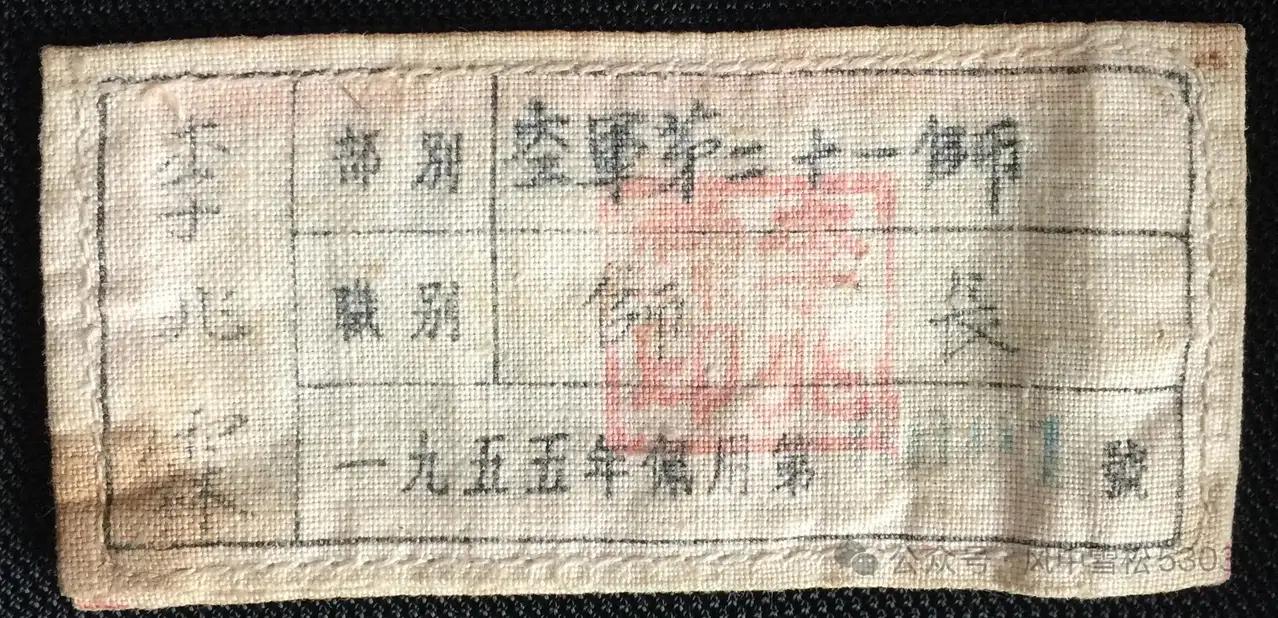 李兆
部别 陸軍第二十一師
職别 師長
一九五五年佩用第 號
公众号·风中雪松5303